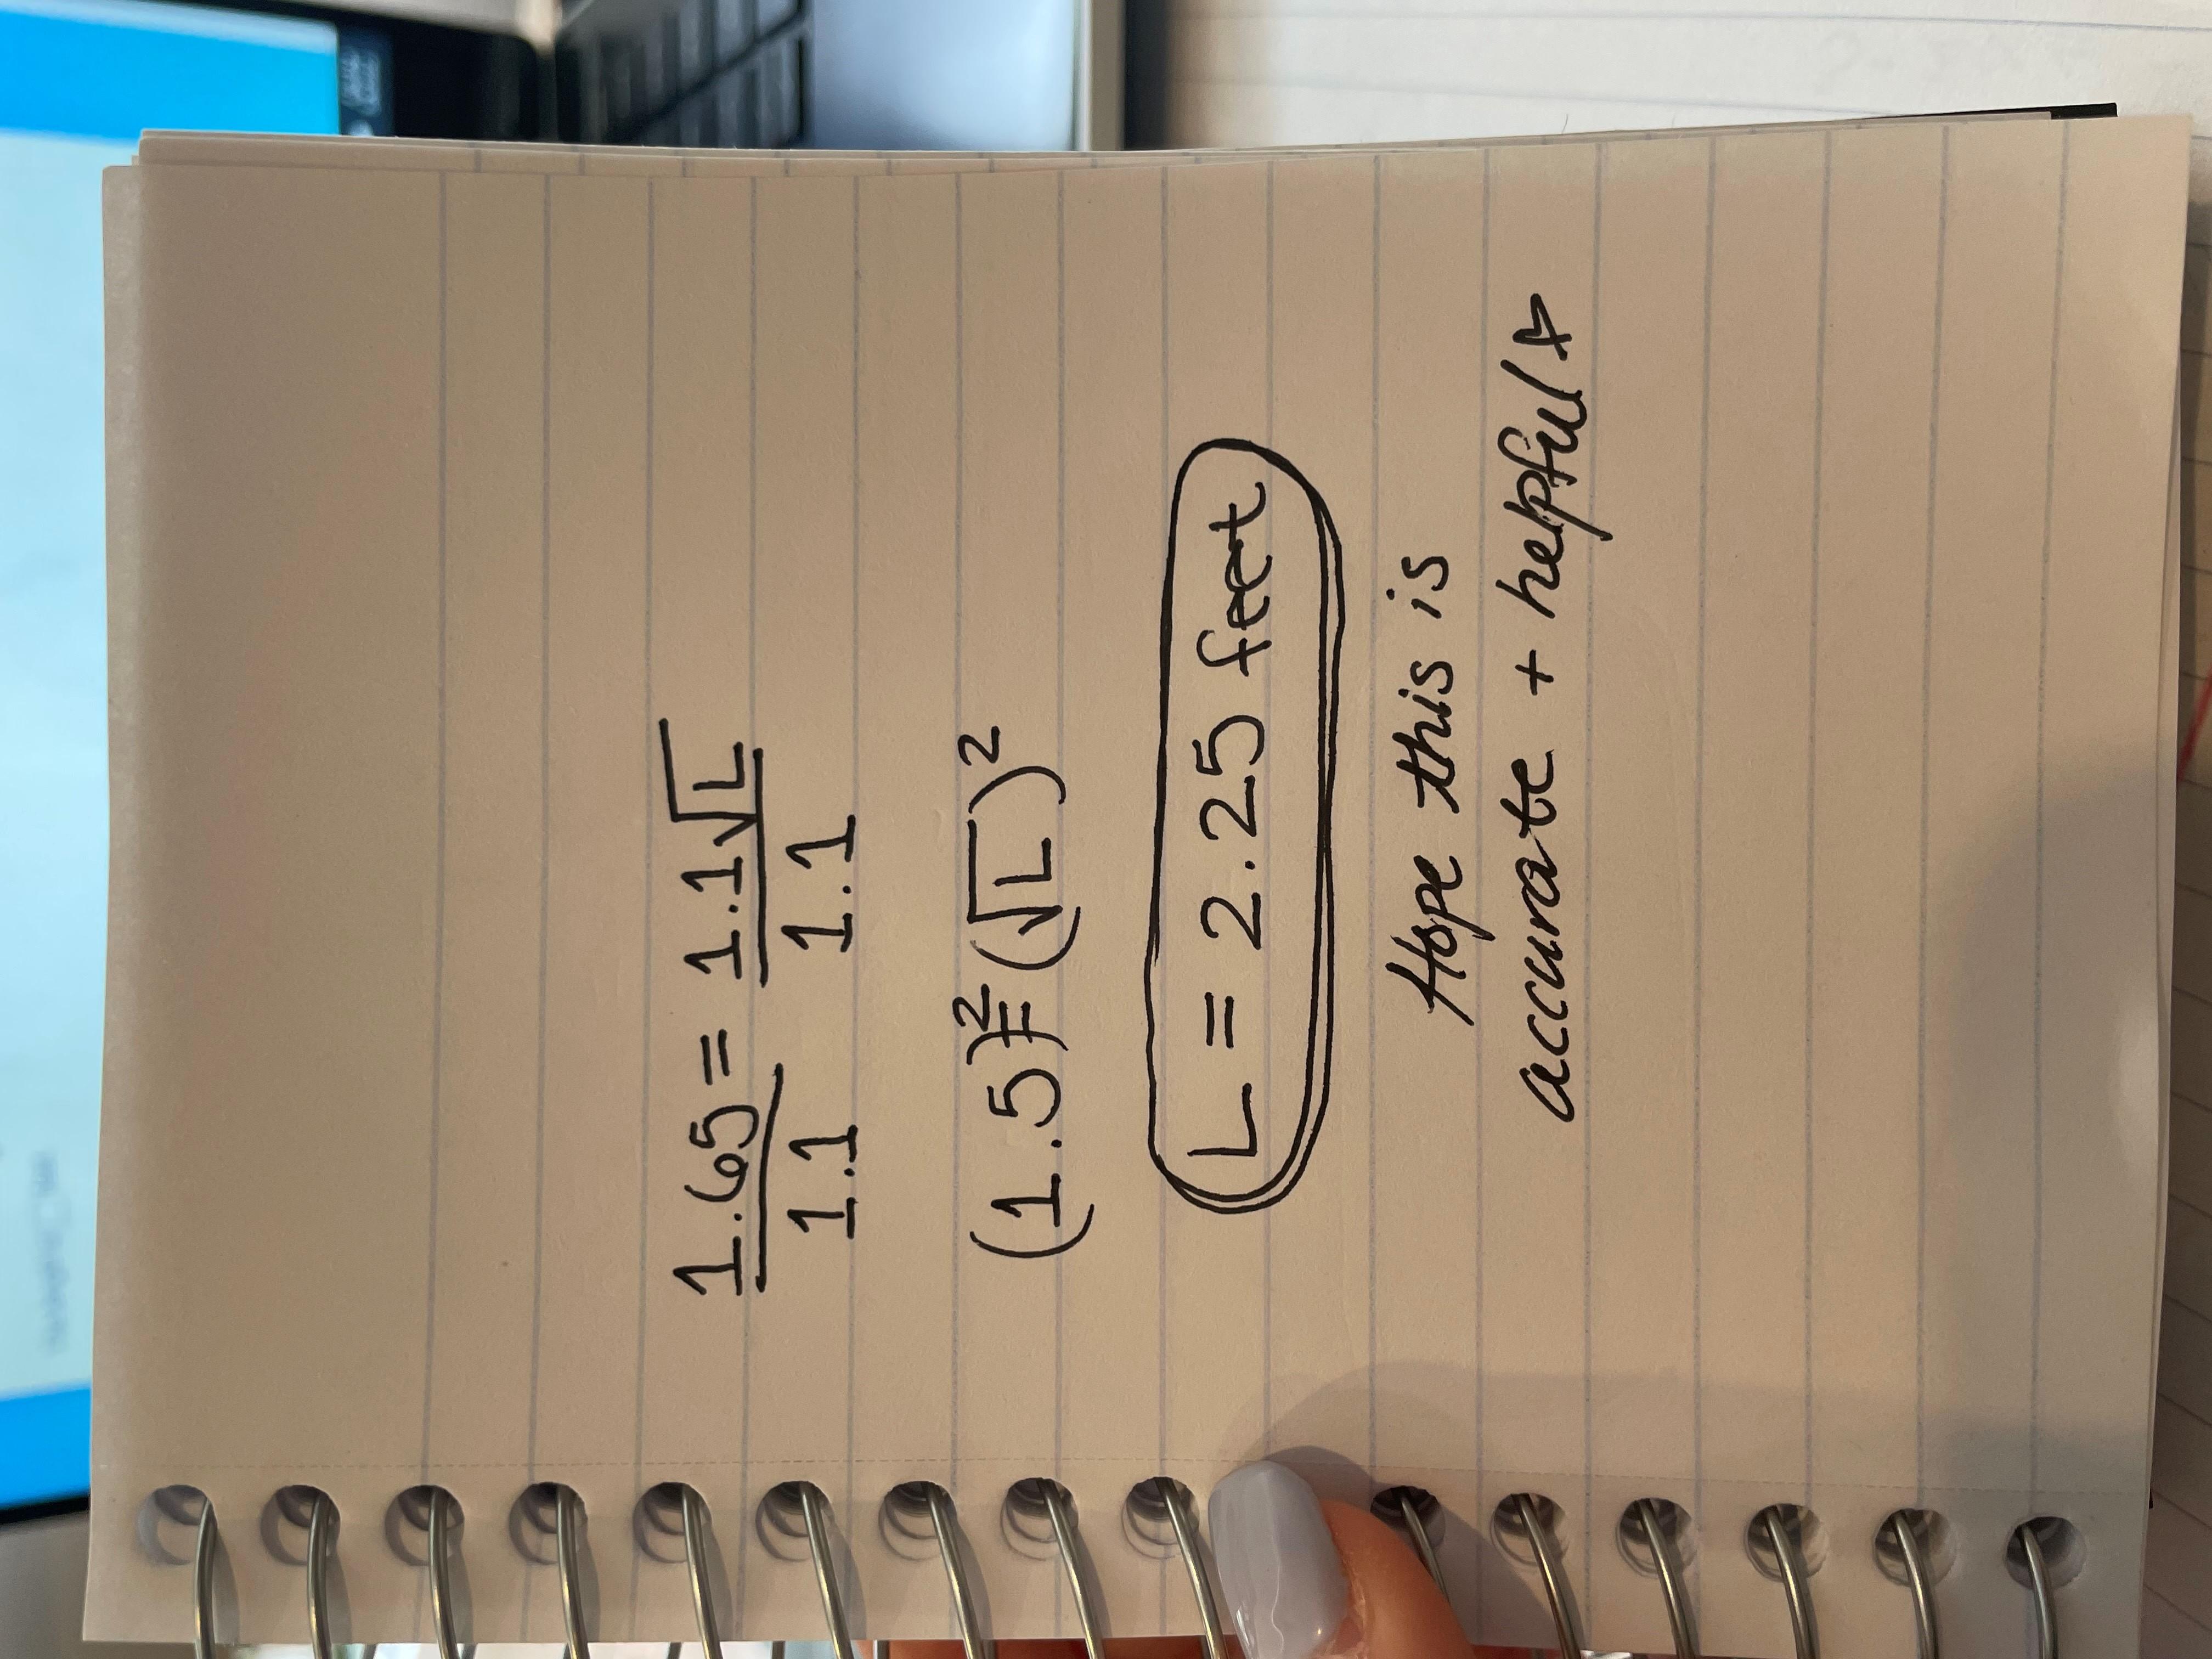 1.65 = 1.1√L
1.1 1.1
(1.5)² = (√L)²
L = 2.25 feet
Hope this is
accurate + helpful